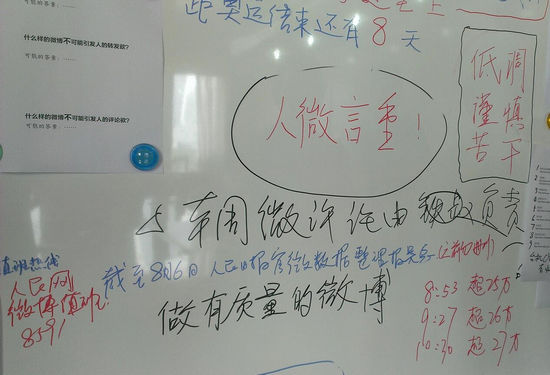 可能的答案：……
什么样的微博不可能引发人的转发欲?
可能的答案：……
什么样的微博不可能引发人的评论欲?
可能的答案：……
距奥运结束还有8天
人微言重！
低调
谨慎
苦干
本周微评论由
负责
直班热线
人民网
微博值班
8591
截至8月6日 人民日报官微数据整理报吴会
做有质量的微博
8:53 超25万
9:27 超26万
10:30 超27万